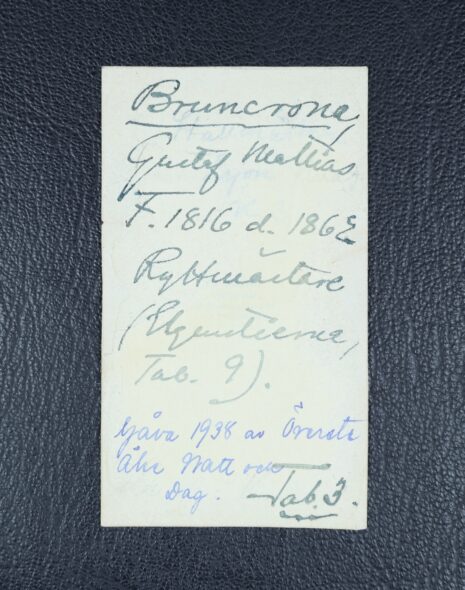 Bruncrona,
Gustaf Mattias
F. 1816 d. 1862
Ryttmästare
(Elgenstierna,
Tab. 9).
Gåva 1938 av Överste
Åke Natt och
Dag.
Tab. 3.